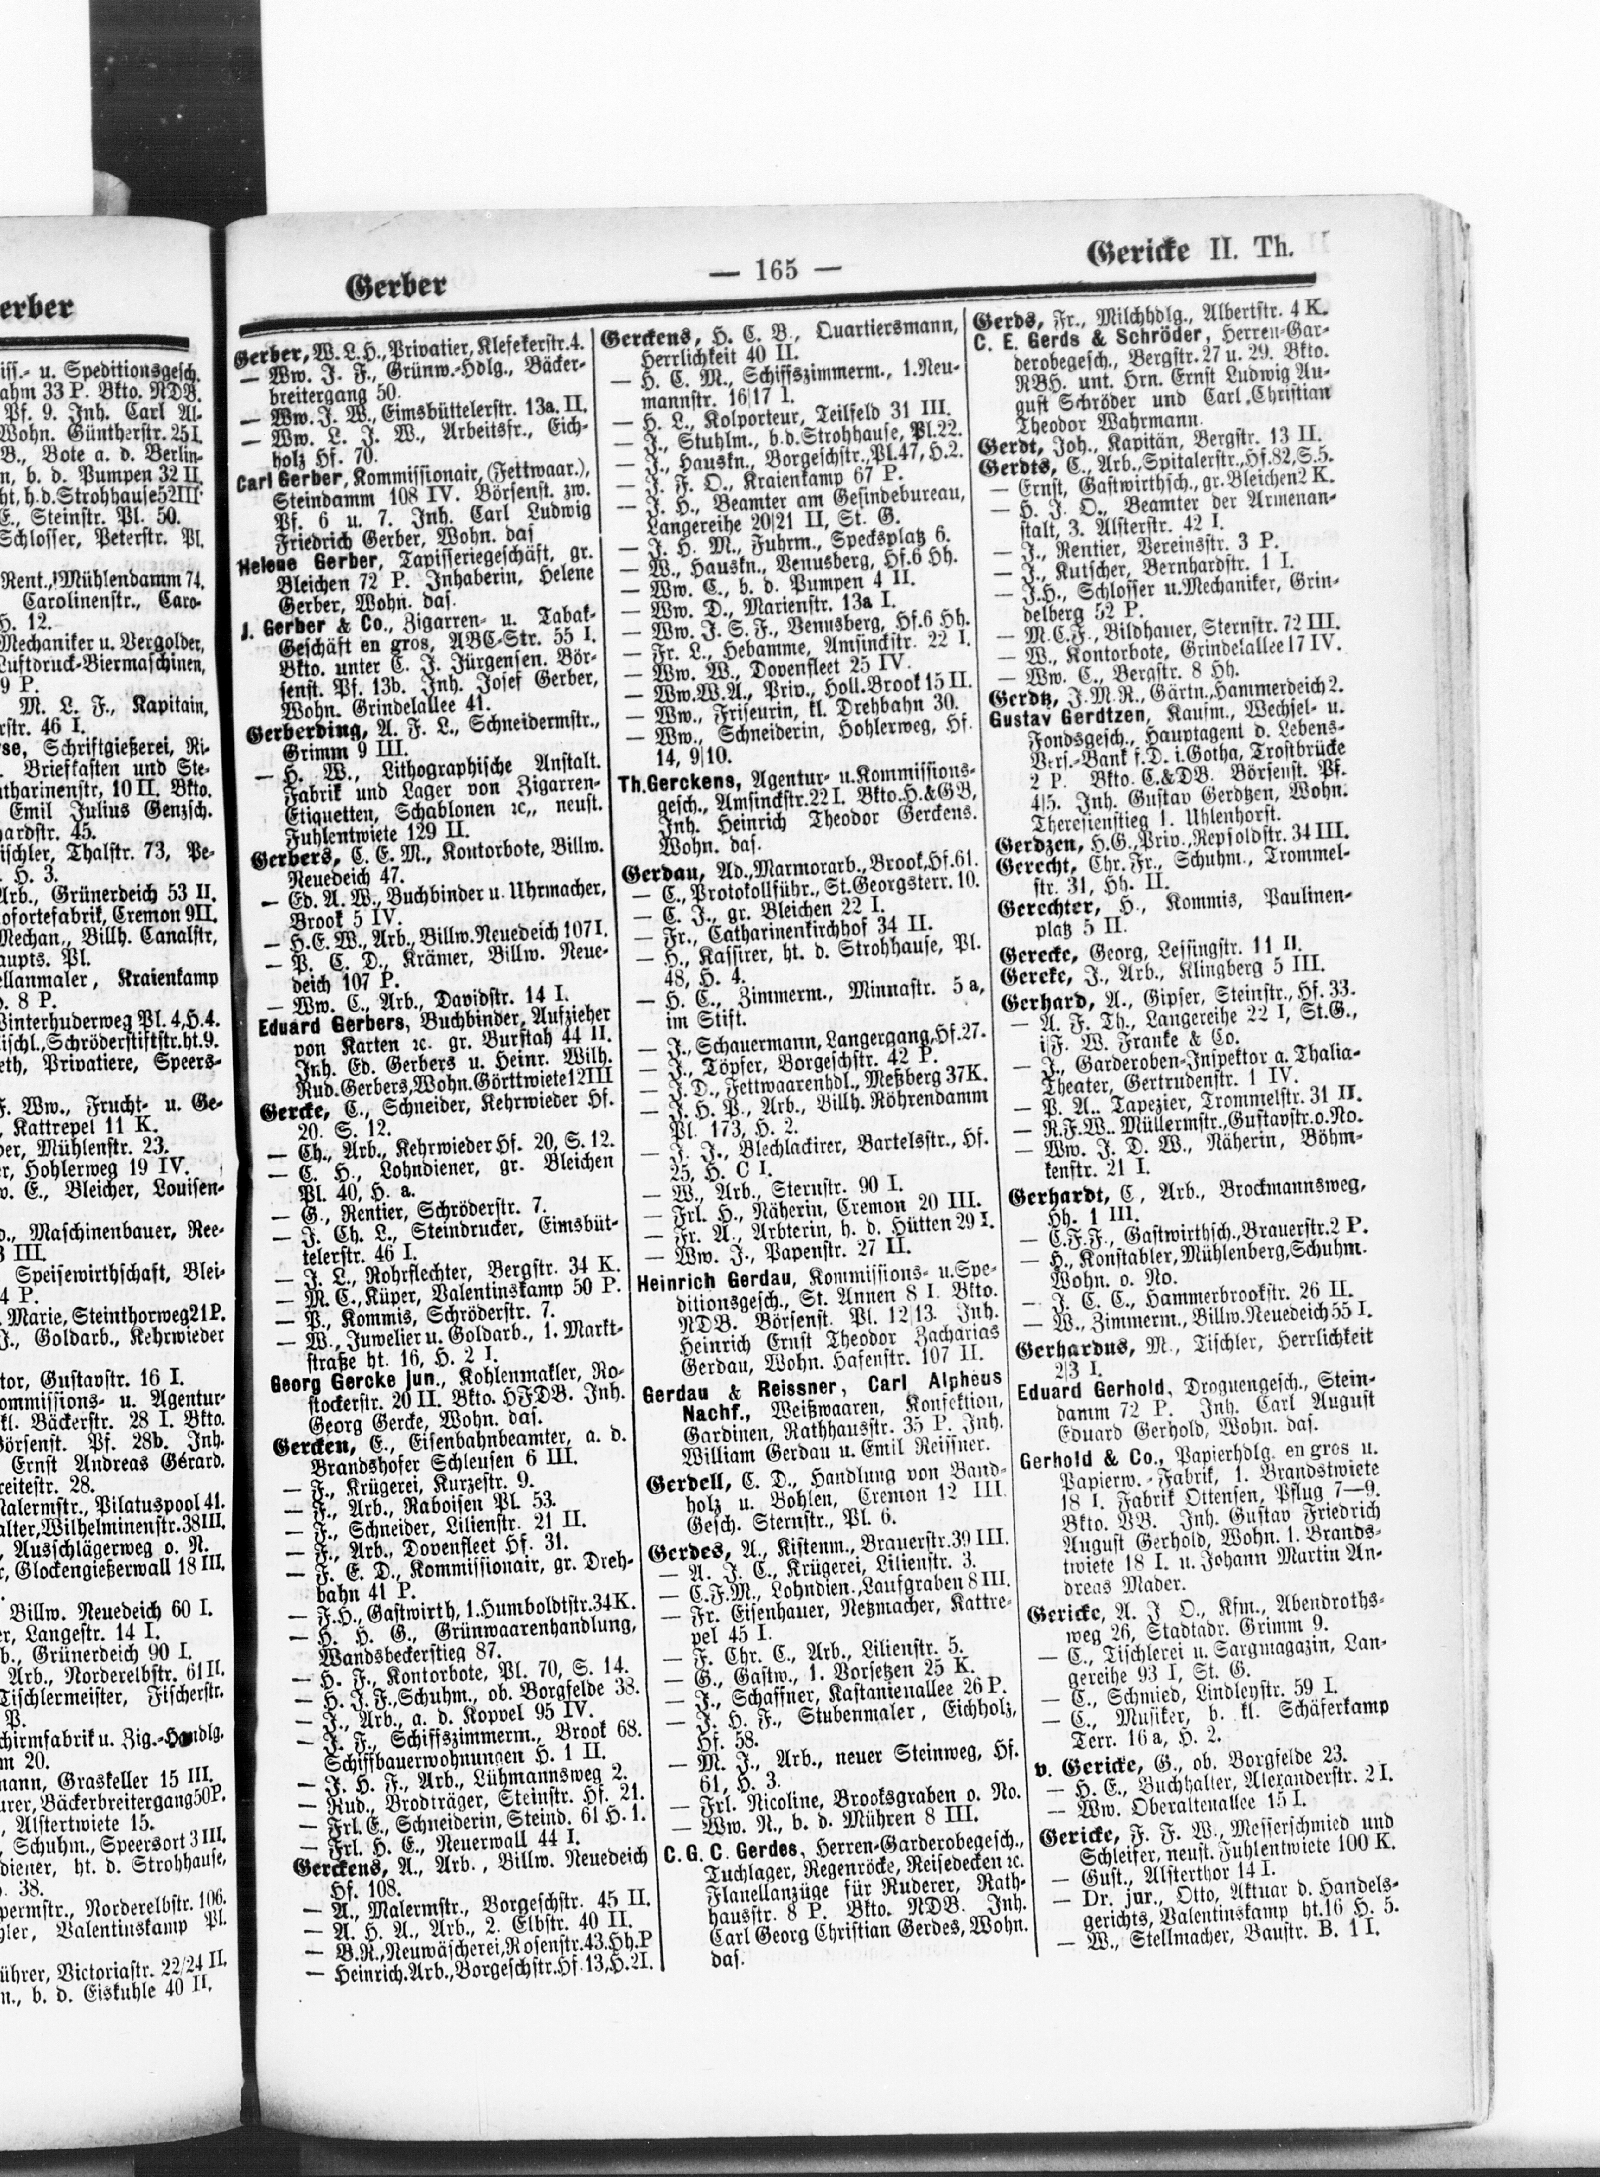 erber
iff.- u. Speditionsgesch.
ahm 33 P. Bkto. NDB.
Pf. 9. Inh. Carl Al-
Wohn. Güntherstr. 25 I.
B., Bote a. d. Berlin-
n, b. d. Pumpen 32 II.
ht, h. d. Strohhause 52 III.
E., Steinstr. Pl. 50.
Schlosser, Peterstr. Pl.
Rent., Mühlendamm 74.
Carolinenstr., Caro-
H. 12.
Mechaniker u. Vergolder,
Luftdruck-Biermaschinen,
9 P.
M. L. F., Kapitain,
rstr. 46 I.
se, Schriftgießerei, Ri-
Briefkasten und Ste-
atharinenstr, 10 II. Bkto.
Emil Julius Genzsch.
ardstr. 45.
ischler, Thalstr. 73, Pe-
H. 3.
Arb., Grünerdeich 53 II.
ofortefabrik, Cremon 9 II.
Mechan., Billh. Canalstr,
aupts. Pl.
ellanmaler, Kraienkamp
b. 8 P.
Winterhuderweg Pl. 4, H. 4.
ischl., Schröderstiftstr. ht. 9.
eth, Privatiere, Speers-
F. Ww., Frucht- u. Ge-
Kattrepel 11 K.
er, Mühlenstr. 23.
er, Hohlerweg 19 IV.
w. E., Bleicher, Louisen-
o., Maschinenbauer, Ree-
3 III.
Speisewirthschaft, Blei-
4 P.
Marie, Steinthorweg 21 P.
J., Goldarb., Kehrwieder
tor, Gustavstr. 16 I.
ommissions- u. Agentur-
kl. Bäckerstr. 28 I. Bkto.
Börsenst. Pf. 28b. Inh.
Ernst Andreas Gérard.
reitestr. 28.
Malermstr., Pilatuspool 41.
alter, Wilhelminenstr. 38 III.
Ausschlägerweg o. N.
r, Glockengießerwall 18 III.
Billw. Neuedeich 60 I.
er, Langestr. 14 I.
b., Grünerdeich 90 I.
Arb., Norderelbstr. 61 II.
Tischlermeister, Fischerstr.
P.
chirmfabrik u. Zig.-Handlg.
m 20.
mann, Graskeller 15 III.
urer, Bäckerbreitergang 50 P.
, Alstertwiete 15.
, Schuhm., Speersort 3 III.
diener, ht. d. Strohhause,
38.
permstr., Norderelbstr. 106.
gler, Valentinskamp Pl.
ührer, Victoriastr. 22/24 II.
n., b. d. Eiskuhle 40 II.
Gerber — 165 — Gericke II. Th.
Gerber, W. L. H., Privatier, Klefekerstr. 4.
— Ww. J. F., Grünw.-Hdlg., Bäcker-
breitergang 50.
— Ww. J. W., Eimsbüttelerstr. 13a. II.
— Ww. L. J. W., Arbeitsfr., Eich-
holz Hf. 70.
Carl Gerber, Kommissionair, (Fettwaar.),
Steindamm 108 IV. Börsenst. zw.
Pf. 6 u. 7. Inh. Carl Ludwig
Friedrich Gerber, Wohn. das
Helene Gerber, Tapisseriegeschäft, gr.
Bleichen 72 P. Inhaberin, Helene
Gerber, Wohn. das.
J. Gerber & Co., Zigarren- u. Tabak-
Geschäft en gros, ABC-Str. 55 I.
Bkto. unter C. J. Jürgensen. Bör-
senst. Pf. 13b. Inh. Josef Gerber,
Wohn. Grindelallee 41.
Gerberding, A. F. L., Schneidermstr.,
Grimm 9 III.
— H. W., Lithographische Anstalt.
Fabrik und Lager von Zigarren-
Etiquetten, Schablonen ꝛc., neust.
Fuhlentwiete 129 II.
Gerbers, C. E. M., Kontorbote, Billw.
Neuedeich 47.
— Ed. A. W., Buchbinder u. Uhrmacher,
Brook 5 IV.
— H. E. W., Arb., Billw. Neuedeich 107 I.
— P. C. D., Krämer, Billw. Neue-
deich 107 P.
— Ww. C., Arb., Davidstr. 14 I.
Eduard Gerbers, Buchbinder, Aufzieher
von Karten ꝛc. gr. Burstah 44 II.
Inh. Ed. Gerbers u. Heinr. Wilh.
Rud. Gerbers, Wohn. Görttwiete 12 III
Gercke, C., Schneider, Kehrwieder Hf.
20. S. 12.
— Ch., Arb., Kehrwieder Hf. 20, S. 12.
— C. H., Lohndiener, gr. Bleichen
Pl. 40, H. a.
— G., Rentier, Schröderstr. 7.
— J. Ch. L., Steindrucker, Eimsbüt-
telerstr. 46 I.
— J. L., Rohrflechter, Bergstr. 34 K.
— M. C., Küper, Valentinskamp 50 P.
— P., Kommis, Schröderstr. 7.
— W., Juwelier u. Goldarb., 1. Markt-
straße ht. 16, H. 2 I.
Georg Gercke jun., Kohlenmakler, Ro-
stockerstr. 20 II. Bkto. HFDB. Inh.
Georg Gercke, Wohn. das.
Gercken, E., Eisenbahnbeamter, a. d.
Brandshofer Schleusen 6 III.
— F., Krügerei, Kurzestr. 9.
— F., Arb., Raboisen Pl. 53.
— F., Schneider, Lilienstr. 21 II.
— F., Arb., Dovenfleet Hf. 31.
— F. E. D., Kommissionair, gr. Dreh-
bahn 41 P.
— F. H., Gastwirth, 1. Humboldtstr. 34 K.
— H. H. G., Grünwaarenhandlung,
Wandsbeckerstieg 87.
— H. F., Kontorbote, Pl. 70, S. 14.
— H. J. F., Schuhm., ob. Borgfelde 38.
— J., Arb., a. d. Koppel 95 IV.
— J. F., Schiffszimmerm., Brook 68.
Schiffbauerwohnungen H. 1 II.
— J. H. F., Arb., Lühmannsweg 2.
— Rud., Brodträger, Steinstr. Hf. 21.
— Frl. E., Schneiderin, Steind. 61 H. 1.
— Frl. H. E., Neuerwall 44 I.
Gerckens, A., Arb., Billw. Neuedeich
Hf. 108.
— A., Malermstr., Borgeschstr. 45 II.
— A. H. A., Arb., 2. Elbstr. 40 II.
— B. R., Neuwäscherei, Rosenstr. 43. Hh. P
— Heinrich. Arb., Borgeschstr. Hf. 13, H. 2 I.
Gerckens, H. C. B., Quartiersmann,
Herrlichkeit 40 II.
— H. C. M., Schiffszimmerm., 1. Neu-
mannstr. 16/17 I.
— H. L., Kolporteur, Teilfeld 31 III.
— J., Stuhlm., b. d. Strohhause, Pl. 22.
— J., Hauskn., Borgeschstr., Pl. 47, H. 2.
— J. F. O., Kraienkamp 67 P.
— J. H., Beamter am Gesindebureau,
Langereihe 20/21 II, St. G.
— J. H. M., Fuhrm., Specksplatz 6.
— W., Hauskn., Venusberg, Hf. 6 Hh.
— Ww. C., b. d. Pumpen 4 II.
— Ww. D., Marienstr. 13a I.
— Ww. J. S. F., Venusberg, Hf. 6 Hh.
— Fr. L., Hebamme, Amsinckstr. 22 I.
— Ww. W., Dovenfleet 25 IV.
— Ww. W. A., Priv., Holl. Brook 15 II.
— Ww., Friseurin, kl. Drehbahn 30.
— Ww., Schneiderin, Hohlerweg, Hf.
14, 9/10.
Th. Gerckens, Agentur- u. Kommissions-
gesch., Amsinckstr. 22 I. Bkto. H. & GB,
Inh. Heinrich Theodor Gerckens.
Wohn. das.
Gerdau, Ad., Marmorarb., Brook, Hf. 61.
— C., Protokollführ., St. Georgsterr. 10.
— C. J., gr. Bleichen 22 I.
— Fr., Catharinenkirchhof 34 II.
— H., Kassirer, ht. d. Strohhause, Pl.
48, H. 4.
— H. C., Zimmerm., Minnastr. 5 a,
im Stift.
— J., Schauermann, Langergang, Hf. 27.
— J., Töpfer, Borgeschstr. 42 P.
— J. D., Fettwaarenhdl., Meßberg 37 K.
— J. H. P., Arb., Billh. Röhrendamm
Pl. 173, H. 2.
— J. J., Blechlackirer, Bartelsstr., Hf.
25, H. C I.
— W., Arb., Sternstr. 90 I.
— Frl. H., Näherin, Cremon 20 III.
— Fr. A., Arbterin, h. d. Hütten 29 I.
— Ww. J., Papenstr. 27 II.
Heinrich Gerdau, Kommissions- u. Spe-
ditionsgesch., St. Annen 8 I. Bkto.
NDB. Börsenst. Pl. 12/13. Inh.
Heinrich Ernst Theodor Zacharias
Gerdau, Wohn. Hafenstr. 107 II.
Gerdau & Reissner, Carl Alphéus
Nachf., Weißwaaren, Konfektion,
Gardinen, Rathhausstr. 35 P. Inh.
William Gerdau u. Emil Reissner.
Gerdell, C. D., Handlung von Band-
holz u. Bohlen, Cremon 12 III.
Gesch. Sternstr., Pl. 6.
Gerdes, A., Kistenm., Brauerstr. 39 III.
— A. J. C., Krügerei, Lilienstr. 3.
— C. F. M., Lohndien., Laufgraben 8 III.
— Fr. Eisenhauer, Netzmacher, Kattre-
pel 45 I.
— F. Chr. C., Arb., Lilienstr. 5.
— G., Gastw., 1. Vorsetzen 25 K.
— J., Schaffner, Kastanienallee 26 P.
— J. H. F., Stubenmaler, Eichholz,
Hf. 58.
— M. J., Arb., neuer Steinweg, Hf.
61, H. 3.
— Frl. Nicoline, Brooksgraben o. No.
— Ww. N., b. d. Mühren 8 III.
C. G. C. Gerdes, Herren-Garderobegesch.,
Tuchlager, Regenröcke, Reisedecken ꝛc.
Flanellanzüge für Ruderer, Rath-
hausstr. 8 P. Bkto. NDB. Inh.
Carl Georg Christian Gerdes, Wohn.
das.
Gerds, Fr., Milchhdlg., Albertstr. 4 K.
C. E. Gerds & Schröder, Herren-Gar-
derobegesch., Bergstr. 27 u. 29. Bkto.
RBH. unt. Hrn. Ernst Ludwig Au-
gust Schröder und Carl Christian
Theodor Wahrmann.
Gerdt, Joh., Kapitän, Bergstr. 13 II.
Gerdts, C., Arb., Spitalerstr., Hf. 82, S. 5.
— Ernst, Gastwirthsch., gr. Bleichen 2 K.
— H. J. O., Beamter der Armenan-
stalt, 3. Alsterstr. 42 I.
— J., Rentier, Vereinsstr. 3 P.
— J., Kutscher, Bernhardstr. 1 I.
— J. H., Schlosser u. Mechaniker, Grin-
delberg 52 P.
— M. C. F., Bildhauer, Sternstr. 72 III.
— W., Kontorbote, Grindelallee 17 IV.
— Ww. C., Bergstr. 8 Hh.
Gerdtz, J. M. R., Gärtn., Hammerdeich 2.
Gustav Gerdtzen, Kaufm., Wechsel- u.
Fondsgesch., Hauptagent d. Lebens-
Vers.-Bank f. D. i. Gotha, Trostbrücke
2 P. Bkto. C. & DB. Börsenst. Pf.
4/5. Inh. Gustav Gerdtzen, Wohn.
Theresienstieg 1. Uhlenhorst.
Gerdzen, H. G., Priv., Repsoldstr. 34 III.
Gerecht, Chr. Fr., Schuhm., Trommel-
str. 31, Hh. II.
Gerechter, H., Kommis, Paulinen-
platz 5 II.
Gerecke, Georg, Lessingstr. 11 II.
Gereke, J., Arb., Klingberg 5 III.
Gerhard, A., Gipser, Steinstr., Hf. 33.
— A. F. Th., Langereihe 22 I, St. G.,
i/F. W. Franke & Co.
— J., Garderoben-Inspektor a. Thalia-
Theater, Gertrudenstr. 1 IV.
— P. A., Tapezier, Trommelstr. 31 II.
— R. F. W., Müllermstr., Gustavstr. o. No.
— Ww. J. D. W., Näherin, Böhm-
kenstr. 21 I.
Gerhardt, C, Arb., Brockmannsweg,
Hh. 1 III.
— C. F. F., Gastwirthsch., Brauerstr. 2 P.
— H., Konstabler, Mühlenberg, Schuhm.
Wohn. o. No.
— J. C. C., Hammerbrookstr. 26 II.
— W., Zimmerm., Billw. Neuedeich 55 I.
Gerhardus, M., Tischler, Herrlichkeit
2/3 I.
Eduard Gerhold, Droguengesch., Stein-
damm 72 P. Inh. Carl August
Eduard Gerhold, Wohn. das.
Gerhold & Co., Papierhdlg. en gros u.
Papierw.-Fabrik, 1. Brandstwiete
18 I. Fabrik Ottensen, Pflug 7—9.
Bkto. VB. Inh. Gustav Friedrich
August Gerhold, Wohn. 1. Brands-
twiete 18 I. u. Johann Martin An-
dreas Mader.
Gericke, A. J O., Kfm., Abendroths-
weg 26, Stadtadr. Grimm 9.
— C., Tischlerei u. Sargmagazin, Lan-
gereihe 93 I, St. G.
— C., Schmied, Lindleystr. 59 I.
— C., Musiker, b. kl. Schäferkamp
Terr. 16 a, H. 2.
v. Gericke, G., ob. Borgfelde 23.
— H. E., Buchhalter, Alexanderstr. 2 I.
— Ww. Oberaltenallee 15 I.
Gericke, F. F. W., Messerschmied und
Schleifer, neust. Fuhlentwiete 100 K.
— Gust., Alsterthor 14 I.
— Dr. jur., Otto, Aktuar d. Handels-
gerichts, Valentinskamp ht. 16 H. 5.
— W., Stellmacher, Baustr. B. 1 I.